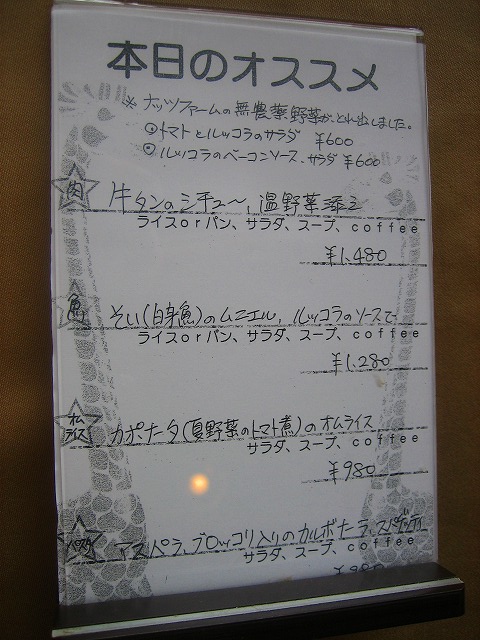 本日のオススメ
※ ナッツファームの無農薬野菜が、とれ出しました。
◎トマトとルッコラのサラダ ¥600
◎ルッコラのベーコンソース、サラダ ¥600
肉 牛タンのシチュ〜、温野菜添え
ライスorパン、サラダ、スープ、coffee
¥1,480
魚 そい(白身魚)のムニエル、ルッコラのソースで
ライスorパン、サラダ、スープ、coffee
¥1,280
オムライス カポナータ(夏野菜のトマト煮)のオムライス
サラダ、スープ、coffee
¥980
パスタ アスパラ、ブロッコリ入りのカルボナーラ、スパゲッティ
サラダ、スープ、coffee
¥980